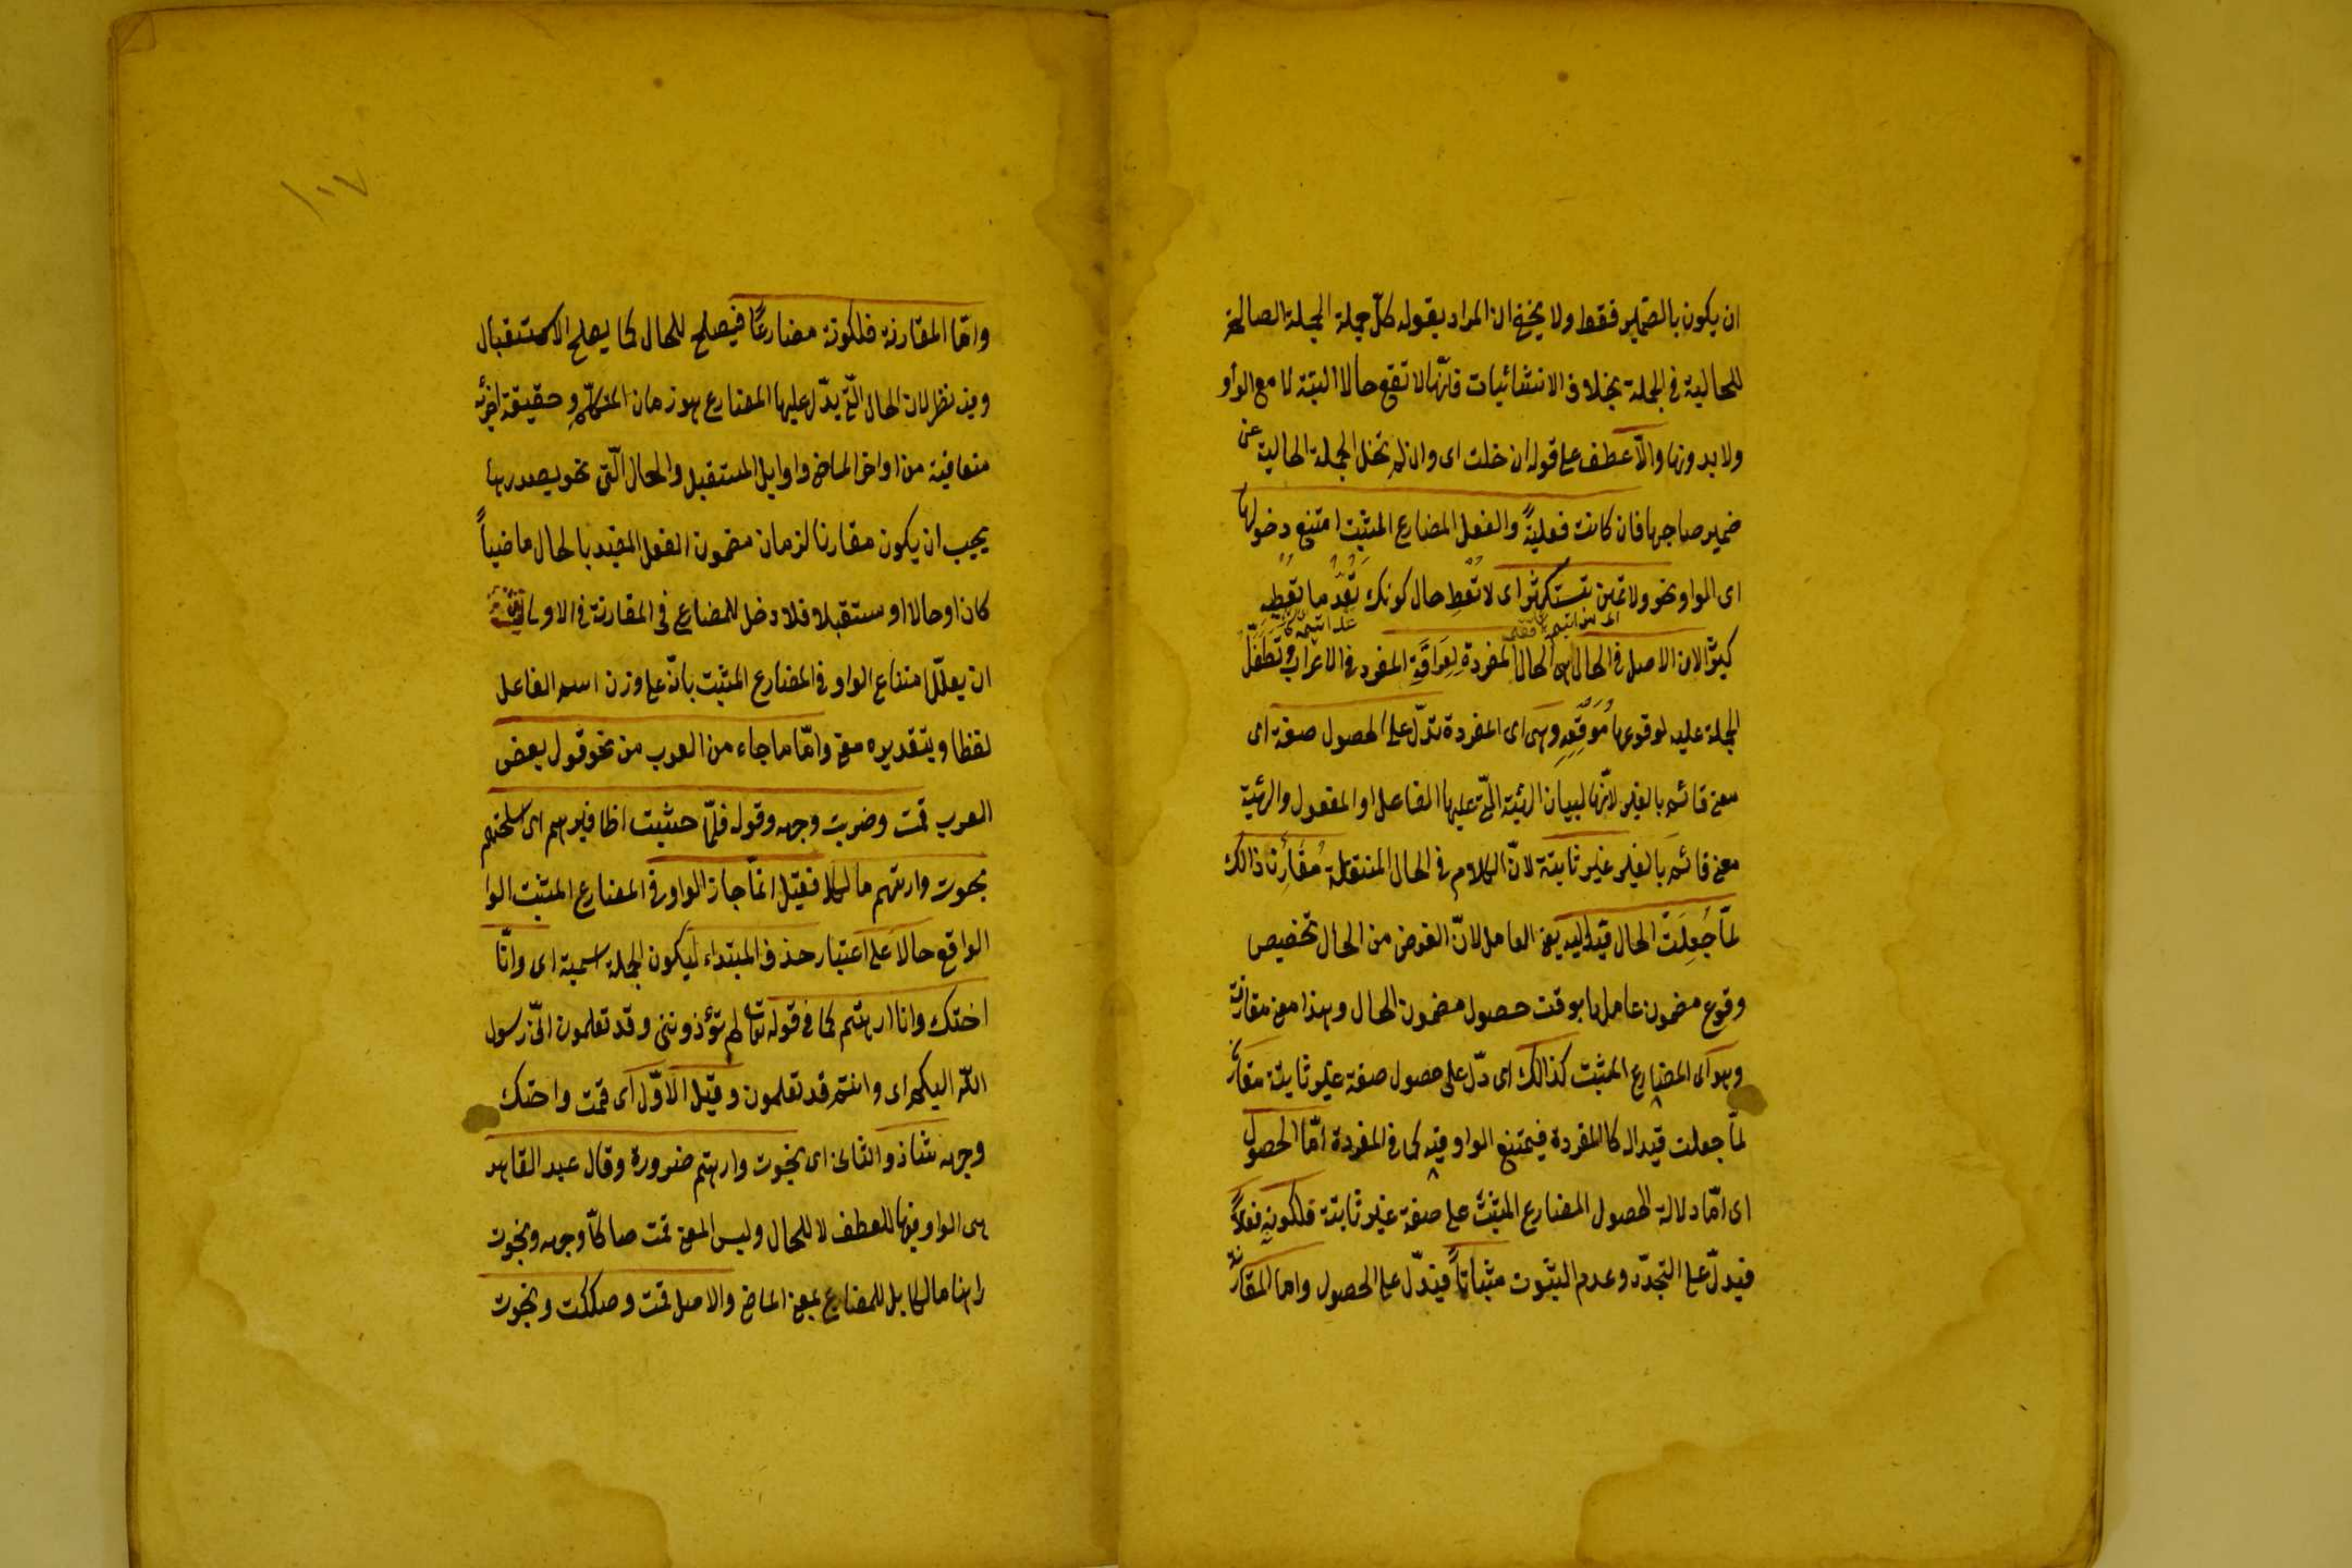 ان يكون بالضمير فقط ولا يخفى ان المراد بقوله كلّ جملة الجملة الصالحة
للحالية في الجملة بخلاف الانشائيات فانّها لا تقع حالا البتة لا مع الواو
ولا بدونها والّا عطف على قوله ان خلت اى وان لم تخل الجملة الحالية عن
ضمير صاحبها فان كانت فعليةً والفعل المضارع المثبت امتنع دخولها
اى الواو نحو ولا تمنن تستكثر اى لا تعط حال كونك تعدّ ما تعطيه
كثيرًا لان الاصل فى الحال هى الحال المفردة لِعَراقَةِ المفرد فى الاعراب وتطفّل
الجملة عليه لوقوعها مَوقِعِهِ وهى اى المفردة تدلّ على الحصول صفة اى
معنى قائم بالغير لانّها لبيان الهيئة الّتى عليها الفاعل او المفعول والهيئة
معنى قائم بالغير غير ثابتة لانّ الكلام فى الحال المنتقلة مُقَارِن ذالك
لمّا جُعِلَتْ الحال قيدا له يعنى العامل لانّ الغرض من الحال تخصيص
وقوع مضمون عاملها بوقت حصول مضمون الحال وهذا معنى مقارنة
وهو اى المضارع المثبت كذالك اى دلّ على حصول صفة غير ثابتة مقارن
لمّا جعلت قيدا له كالمفردة فيمتنع الواو فيه كما فى المفردة امّا الحصول
اى امّا دلالة الحصول المضارع المثبت على صفة غير ثابتة فلكونه فعلاً
فيدلّ على التجدّد وعدم الثبوت مثبتاً فيدلّ على الحصول واما المقارنة
وامّا المقارنة فلكونه مضارعًا فيصلح للحال كما يصلح الاستقبال
وفيه نظر لان الحال الّتى يدلّ عليها المضارع هو زمان المتكلّم وحقيقة اجزائه
متعاقبة من اواخر الماضى واوايل المستقبل والحال الّتى نحو بصدرها
يجب ان يكون مقارنا لزمان مضمون الفعل المقيد بالحال ماضياً
كان او حالا او مستقبلا فلا دخل للمضارع فى المقارنة فى الاولى
ان يعلّل امتناع الواو فى المضارع المثبت بانّه على وزن اسم الفاعل
لفظا وبتقديره معنى وامّا ما جاء من العرب من نحو قول بعض
العرب قمت وضربت وجهه وقوله فلمّا حشيت اظافيرهم اى اسلحتهم
نجوت وارهنهم مالكا فقيل انّما جاز الواو فى المضارع المثبت الوا
الواقع حالا على اعتبار حذف المبتداء ليكون الجملة اسمية اى وانّا
اختك وانا ارهنهم كما فى قوله تعالى لم تؤذوننى وقد تعلمون انّى رسول
اللّه اليكم اى وانتم قد تعلمون وقيل الاوّل اى قمت واختك
وجهه شاذ والثانى اى نجوت وارهنهم ضرورة وقال عبد القاهر
هى الواو فيها للعطف لا للحال وليس المعنى قمت صاكّا وجهه ونجوت
راهنا مالكا بل المضارع بمعنى الماضى والاصل قمت وصككت ونجوت